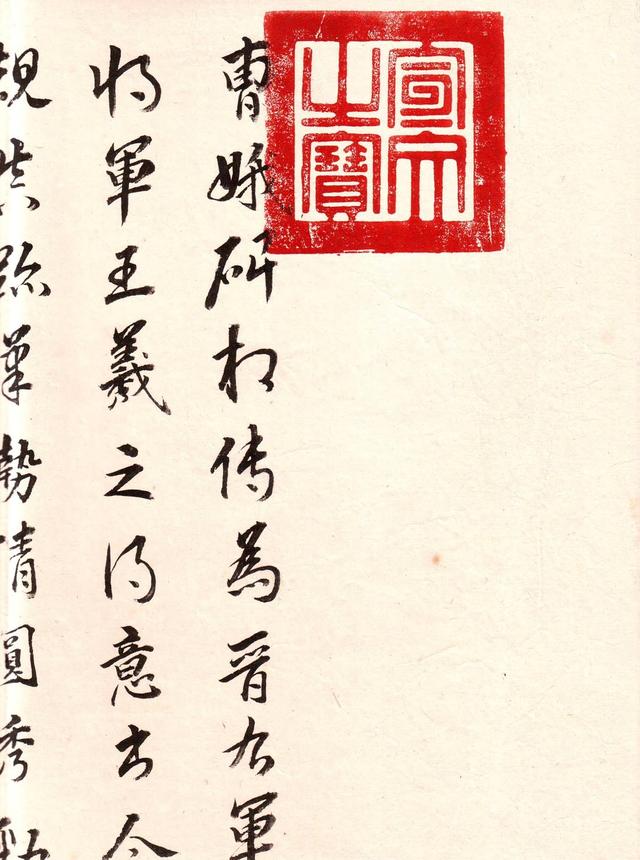 宣文之寶
曹娥碑相傳為晉右軍
將軍王羲之得意書今
覩真跡筆勢清圓秀勁